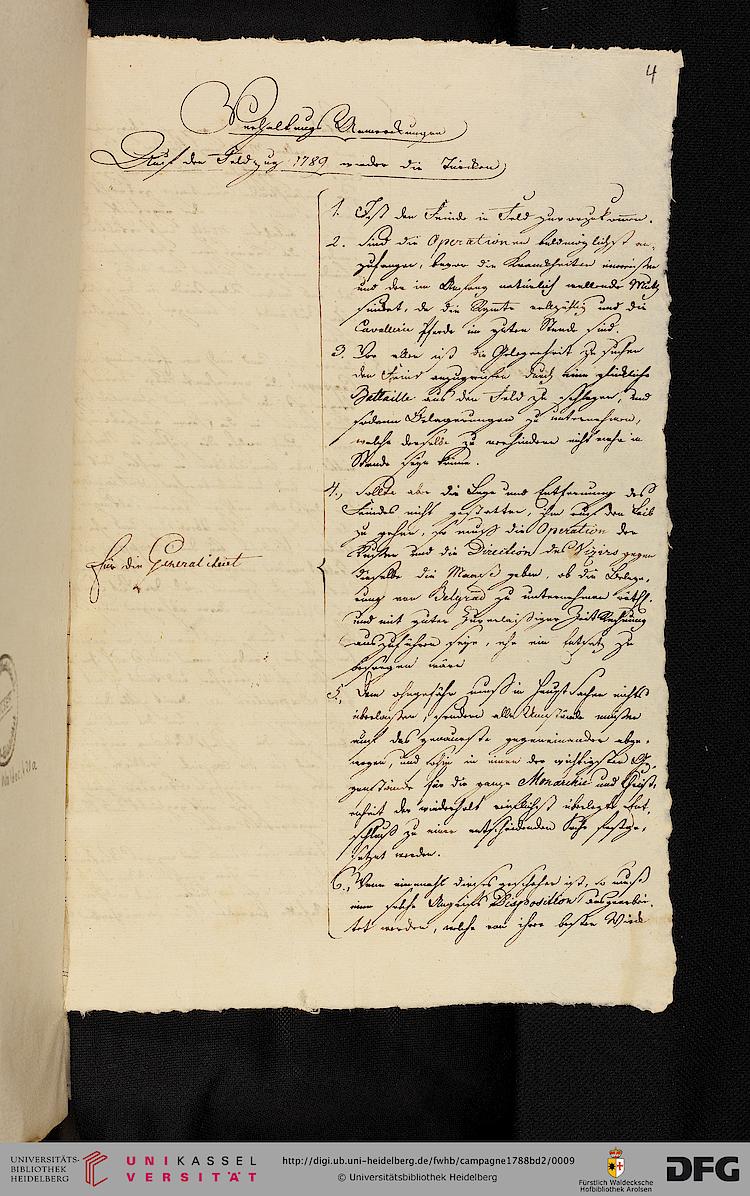 4
Verhaltungs Anmerkungen
Auf den Feldzug 1789 wieder die Türcken
1. Ist dem Feinde in Feld zuvorzukommen.
2. Sind die Operationen baldmöglichst an-
zufangen, bevor die Kranckheiten einreissen
und der im Anfang natürlich wallende Muth
sincket, da die Regimter vollzählig und die
Cavallerie Pferde im guten Stande sind.
3. Vor allem ist die Gelegenheit zu suchen
den Feind anzugreifen durch eine glückliche
Battaille aus dem Feld zu schlagen, und
sodann Belagerungen zu unternehmen,
welche derselbe zu verhindern nicht mehr in
Stande seyn könne.
4., Sollte aber die Lage und Entfernung des
Feindes nicht gestatten, ihm auf den Leib
zu gehen, so muß die Operation der
Russen und die Direction des Viziers gegen
dieselbe die Maaß geben, ob die Belage-
rung von Belgrad zu unternehmen räthl.
und mit guter zuverlässiger Zeit Rechnung
auszuführen seye, ehe ein Entsatz zu
besorgen wäre
Für die Generalitaet
5., Dem ohngefähr muß in Haupt Sachen nichts
überlassen, sondern alle Umstände müssen
auf das genaueste gegeneinander abge-
wogen, und sohin in einem der wichtigsten Ge-
genstände für die ganze Monarchie und Christ-
enheit der wiederholt reiflichst überlegte Ent-
schluß zu einer entscheidenden Sache festge-
setzet werden.
6., Wenn einmahl dieses geschehen ist, so muß
eine solche Angrifs Disposition ausgearbei-
tet werden, welche von ihrer besten Würck
UNIVERSITÄTS-
BIBLIOTHEK
HEIDELBERG
UNIKASSEL
VERSITÄT
http://digi.ub.uni-heidelberg.de/fwhb/campagne1788bd2/0009
© Universitätsbibliothek Heidelberg
Fürstlich Waldecksche
Hofbibliothek Arolsen
DFG